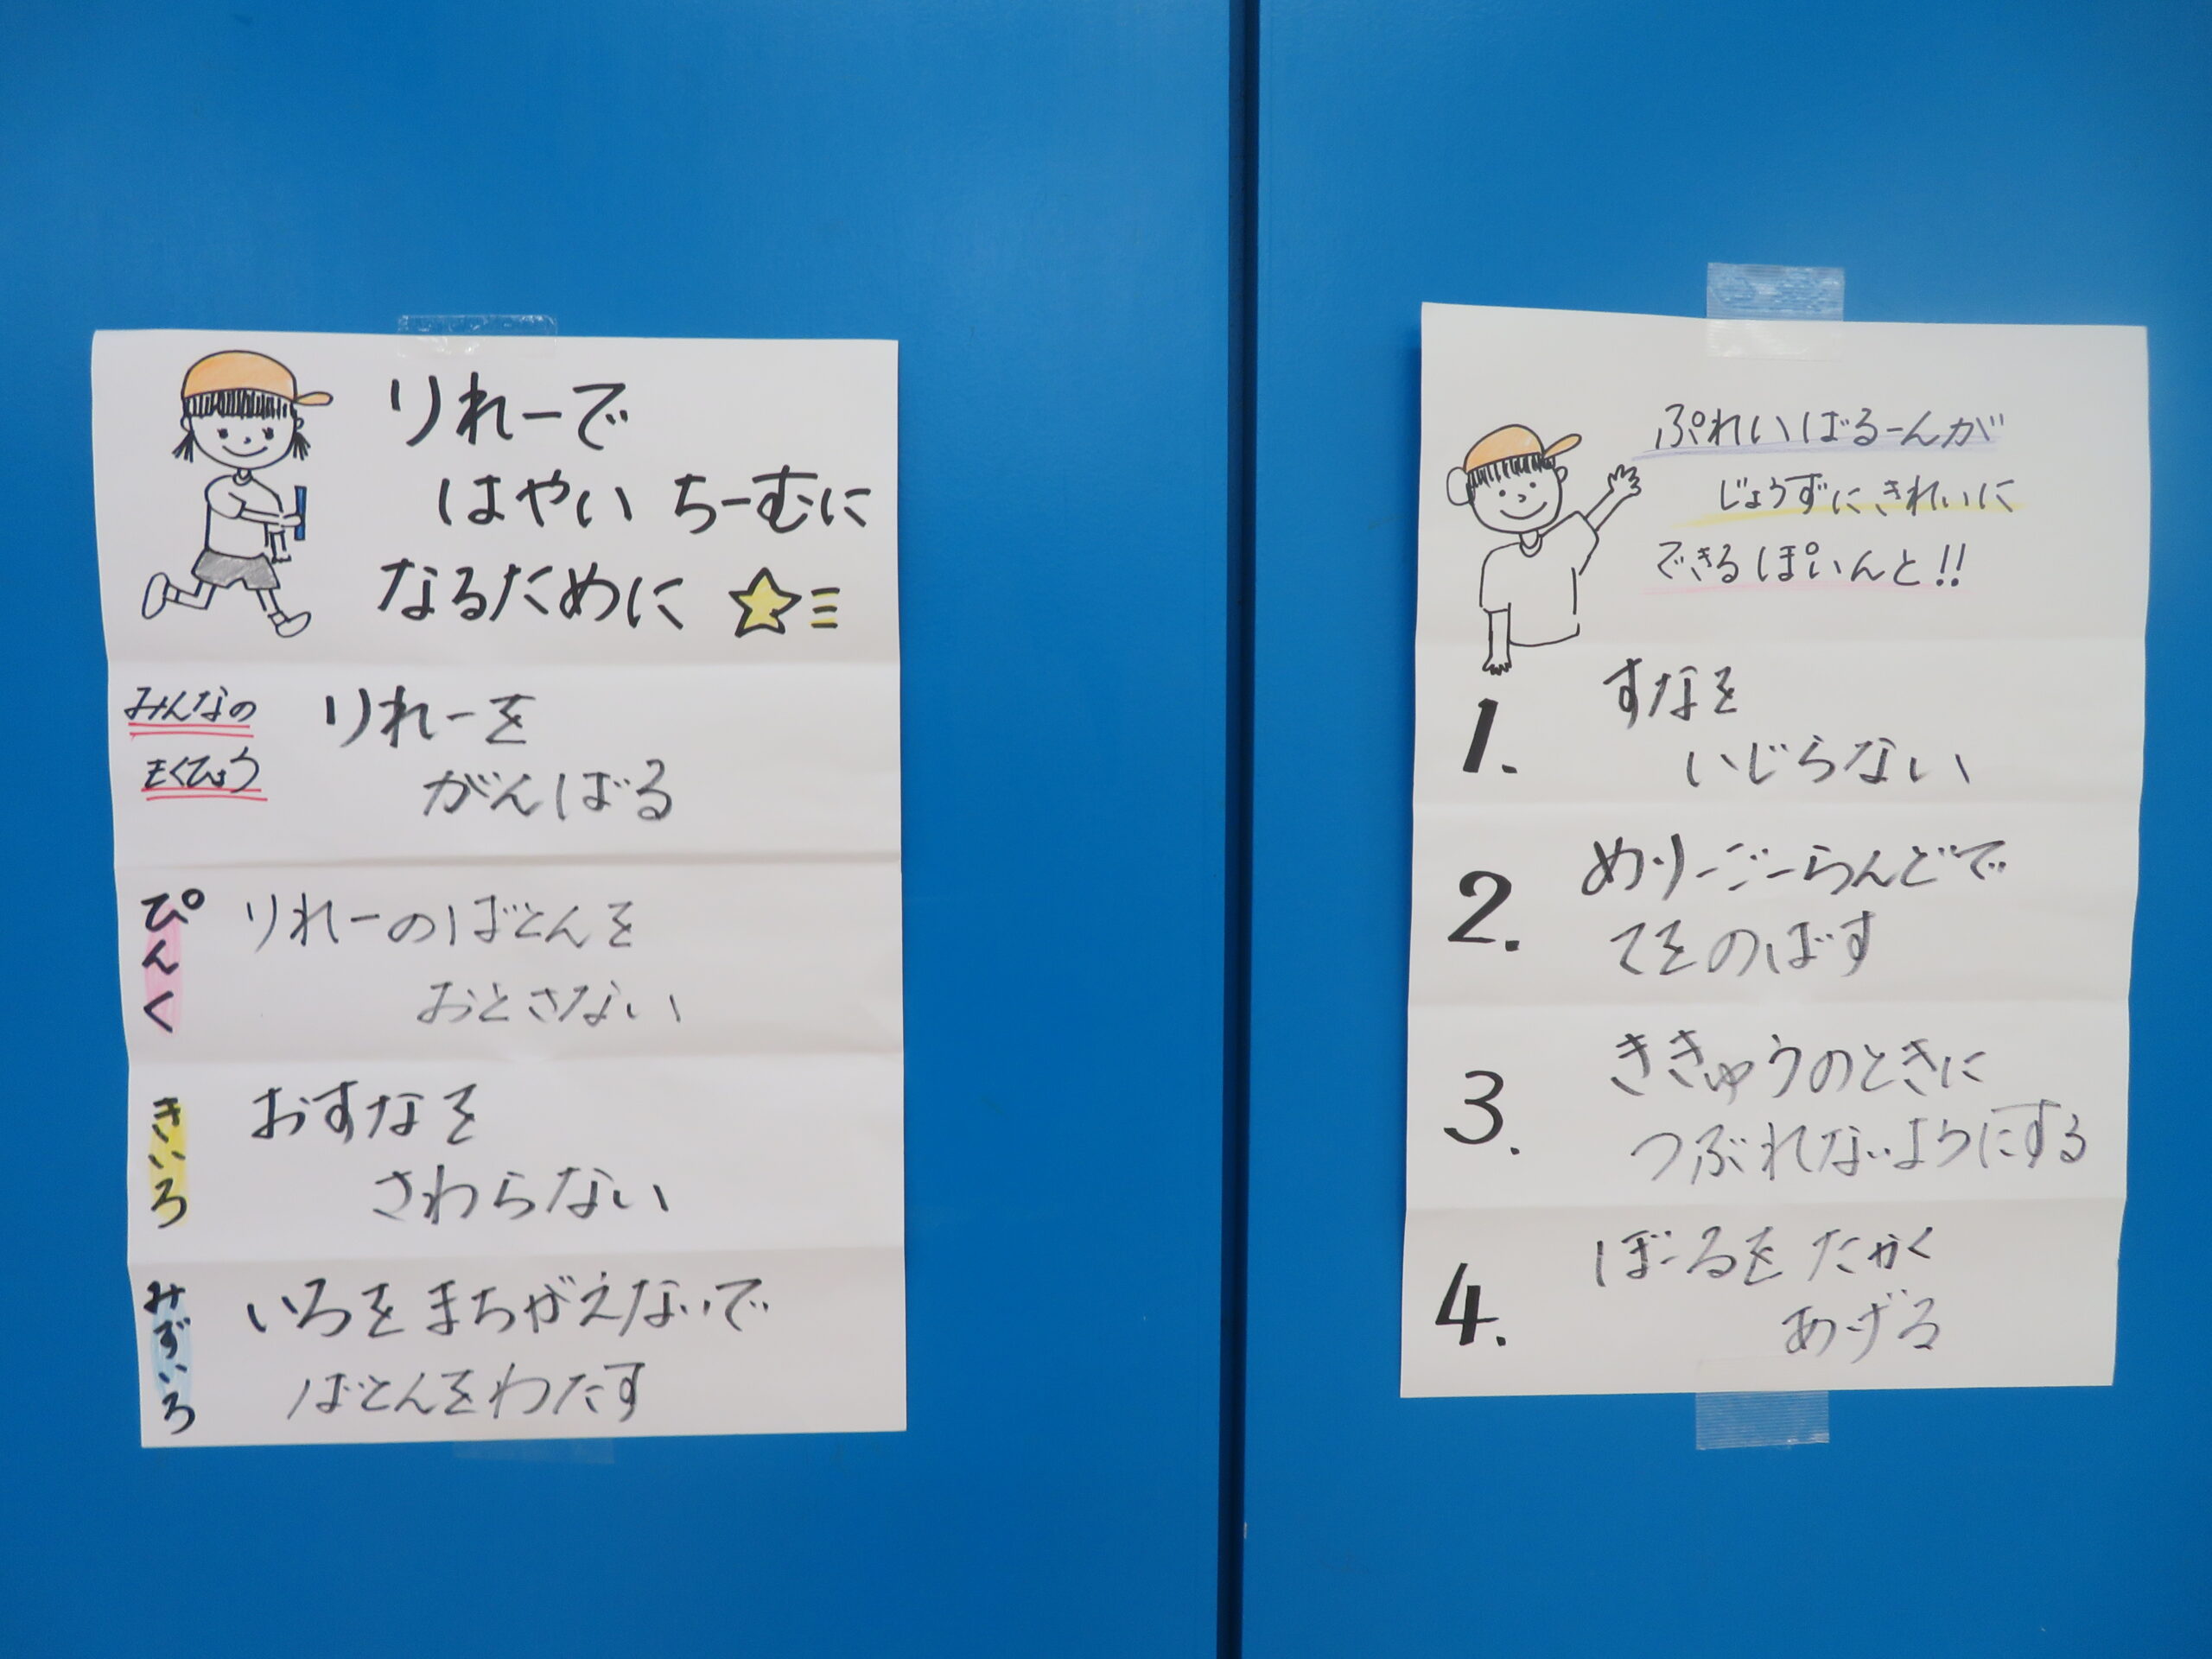 りれーで
はやい ちーむに
なるために
みんなの
もくひょう
りれーを
がんばる
ぴんく
りれーのばとんを
おとさない
きいろ
おすなを
さわらない
みずいろ
いろをまちがえないで
ばとんをわたす
ぷれいばるーんが
じょうずにきれいに
できるぽいんと!!
1.
すなを
いじらない
2.
めりーごーらんどで
てをのばす
3.
ききゅうのときに
つぶれないようにする
4.
ぼーるをたかく
あげる